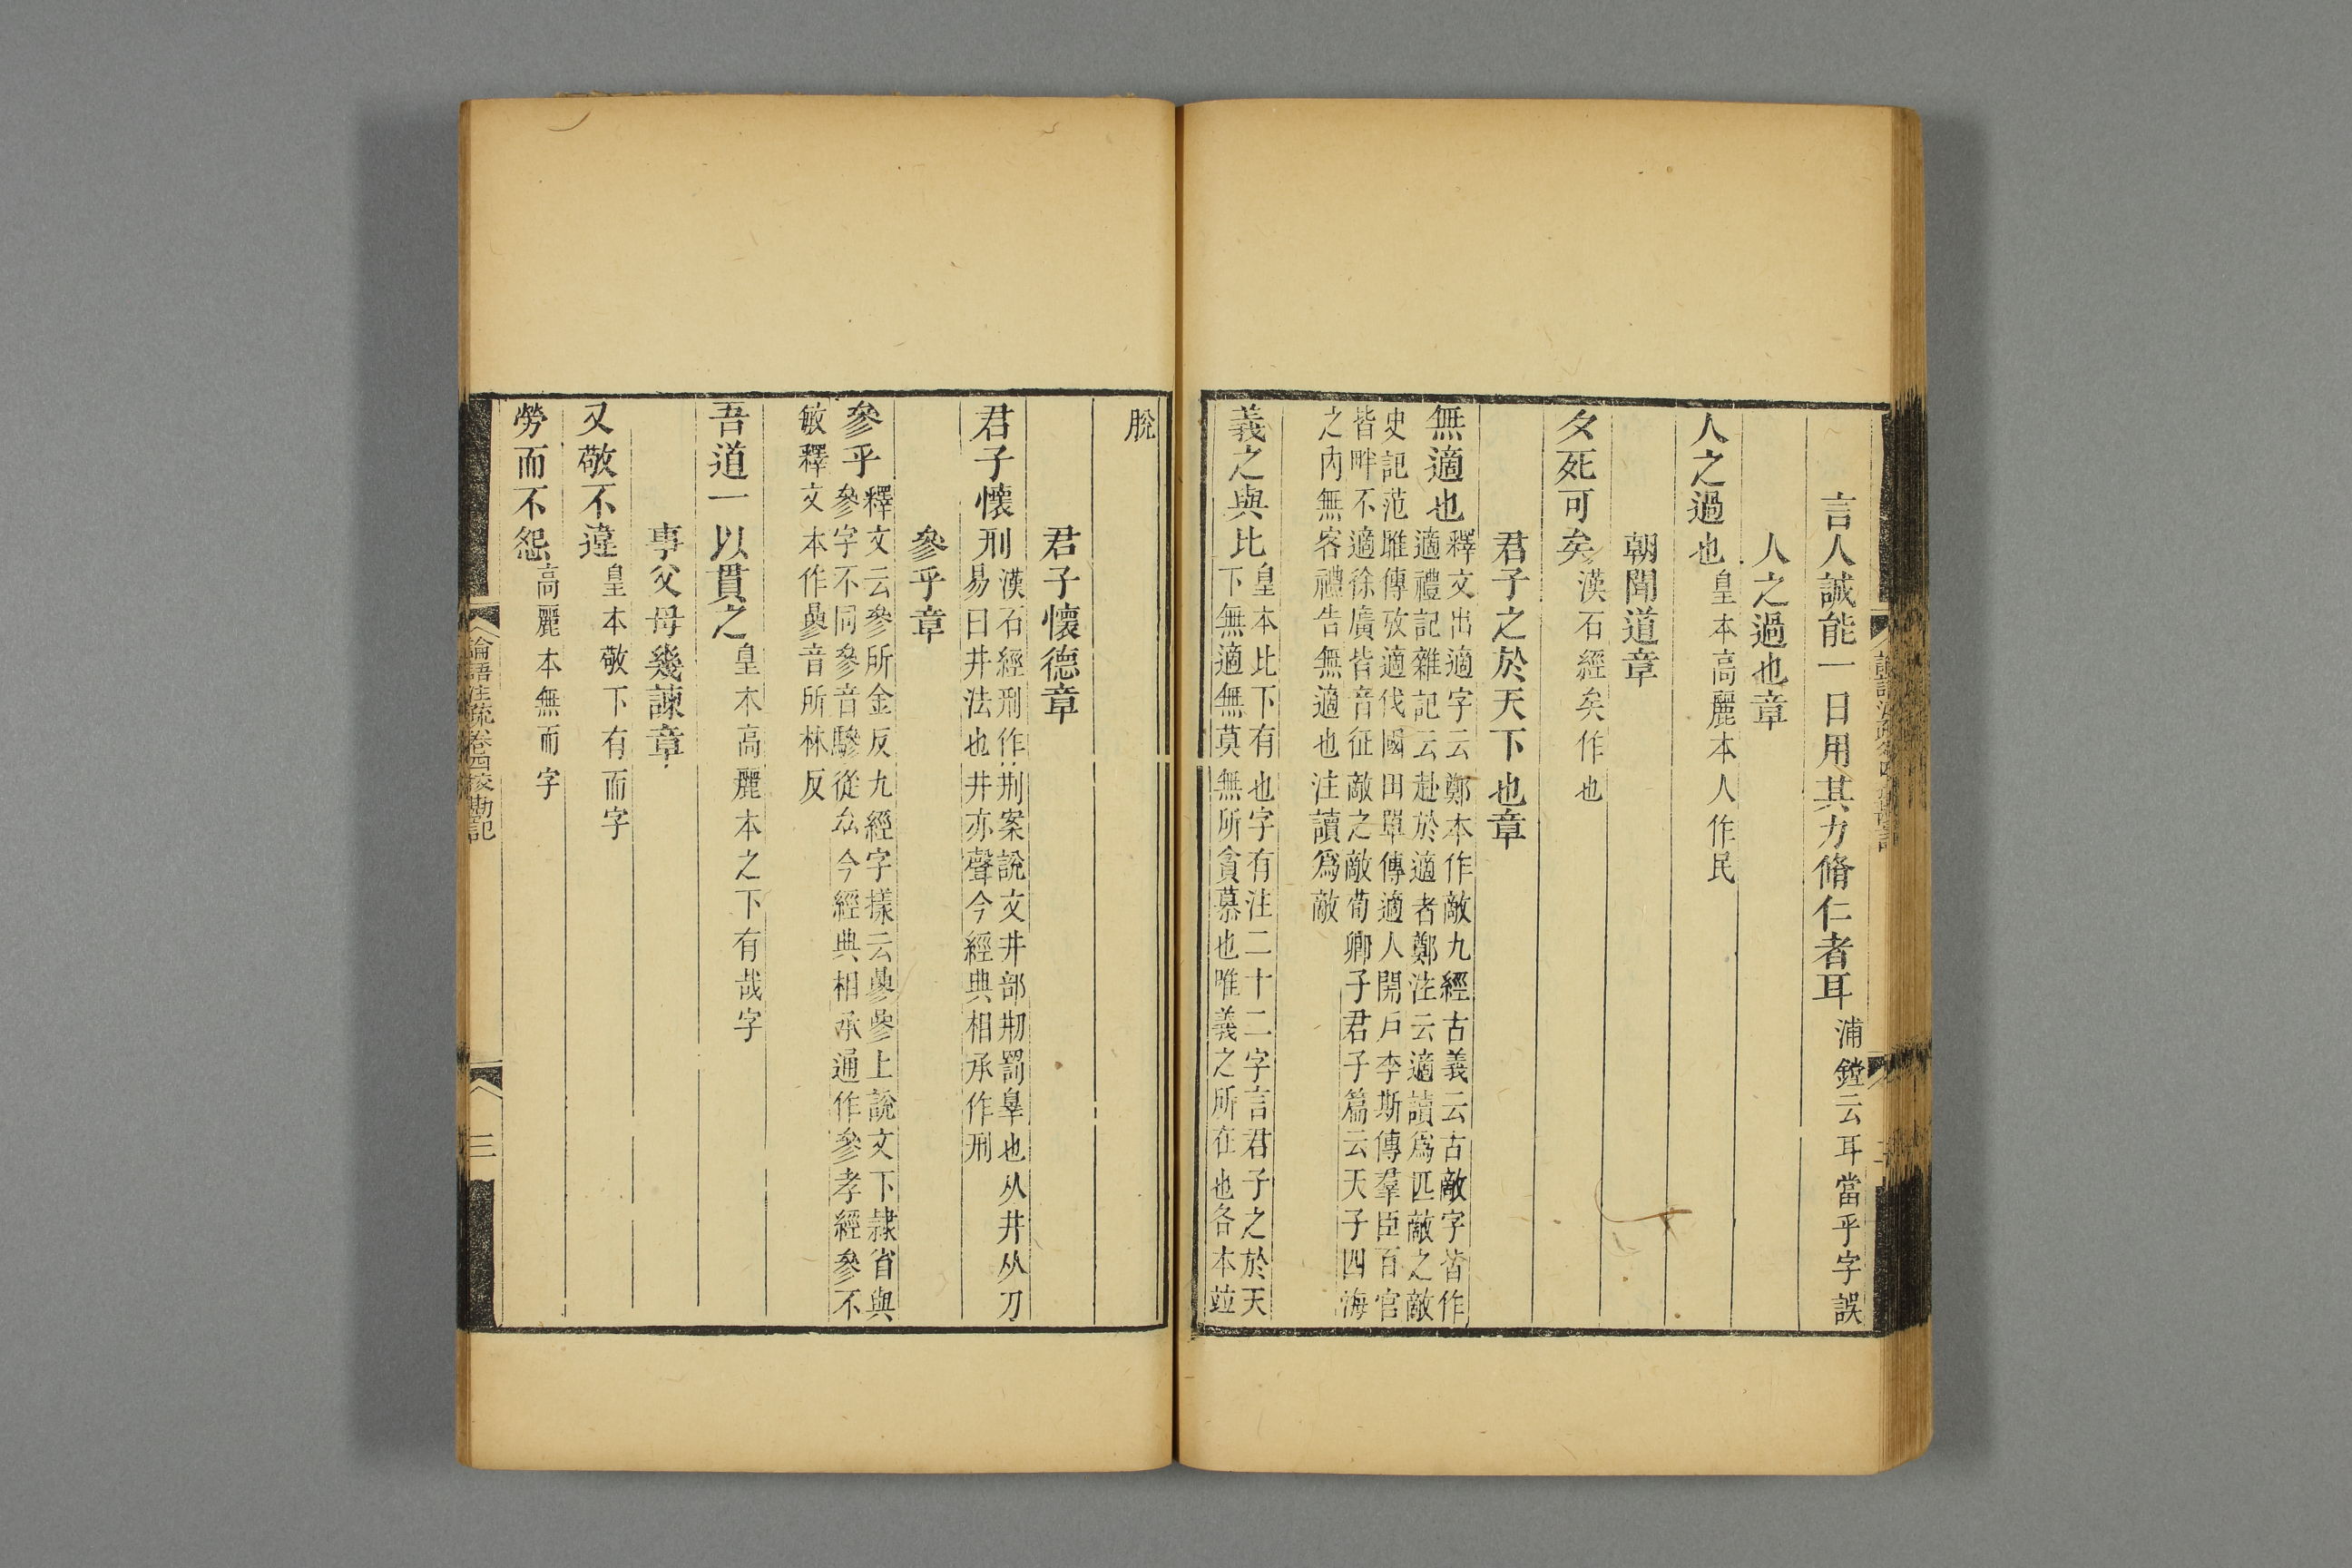 言人誠能一日用其力脩仁者耳浦鏜云耳當乎字誤
人之過也章
人之過也皇本高麗本人作民
朝聞道章
夕死可矣漢石經矣作也
君子之於天下也章
無適也釋文出適字云鄭本作敵九經古義云古敵字皆作
適禮記雜記云赴於適者鄭注云適讀爲匹敵之敵
史記范雎傳攻適伐國田單傳適人開戶李斯傳羣臣百官
皆畔不適徐廣皆音征敵之敵荀卿子君子篇云天子四海
之內無客禮告無適也注讀爲敵
義之與比皇本比下有也字有注二十二字言君子之於天
下無適無莫無所貪慕也唯義之所在也各本竝
脫
君子懷德章
君子懷刑漢石經刑作荆案說文井部刱罰辠也从井从刀
易曰井法也井亦聲今經典相承作刑
參乎章
參乎釋文云參所金反九經字㨾云曑參上說文下隸省與
參字不同參音驂從厽今經典相承通作參孝經參不
敏釋文本作曑音所林反
吾道一以貫之皇本高麗本之下有哉字
事父母幾諫章
又敬不違皇本敬下有而字
勞而不怨高麗本無而字
論語注疏卷四校勘記
三